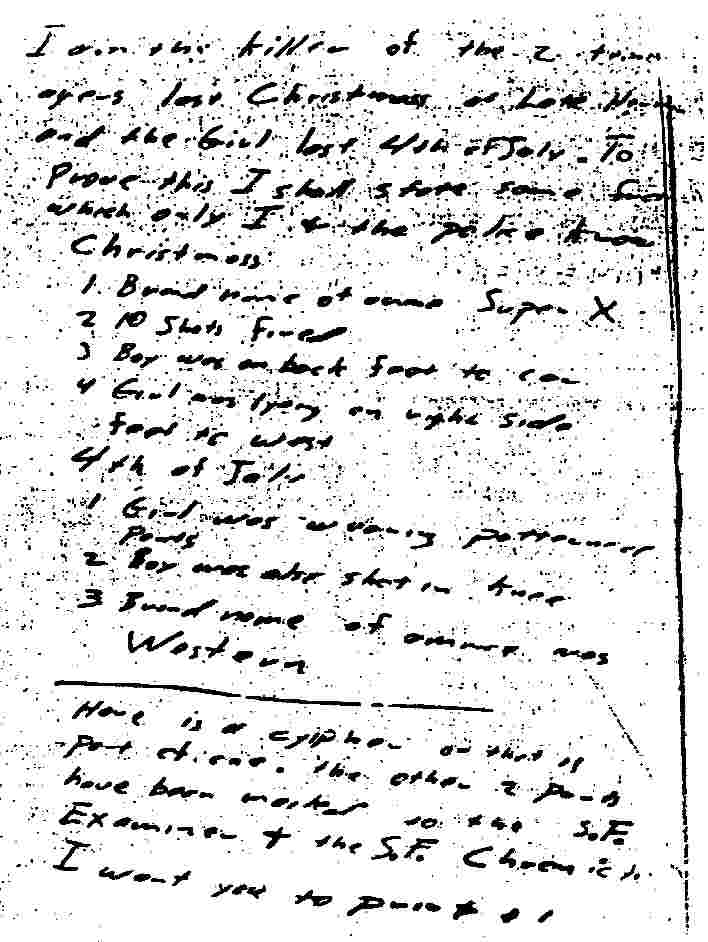 I am the killer of the 2 teen
agers last Christmass at Lake
and the Girl last 4th of July. To
Prove this I shall state some
which only I + the police know
Christmass
1 Brand name of ammo Super X
2 10 Shots fired
3 Boy was on back feet to car
4 Girl was lyeng on right side
feet to west
4th of July
1 Girl was wearing patterned
pants
2 Boy was also shot in knee
3 Brand name of ammo was
Western
Here is a cyipher or that is
part of one. the other 2 parts
have been mailed to the S.F.
Examiner + the S.F. Chronicle.
I want you to print